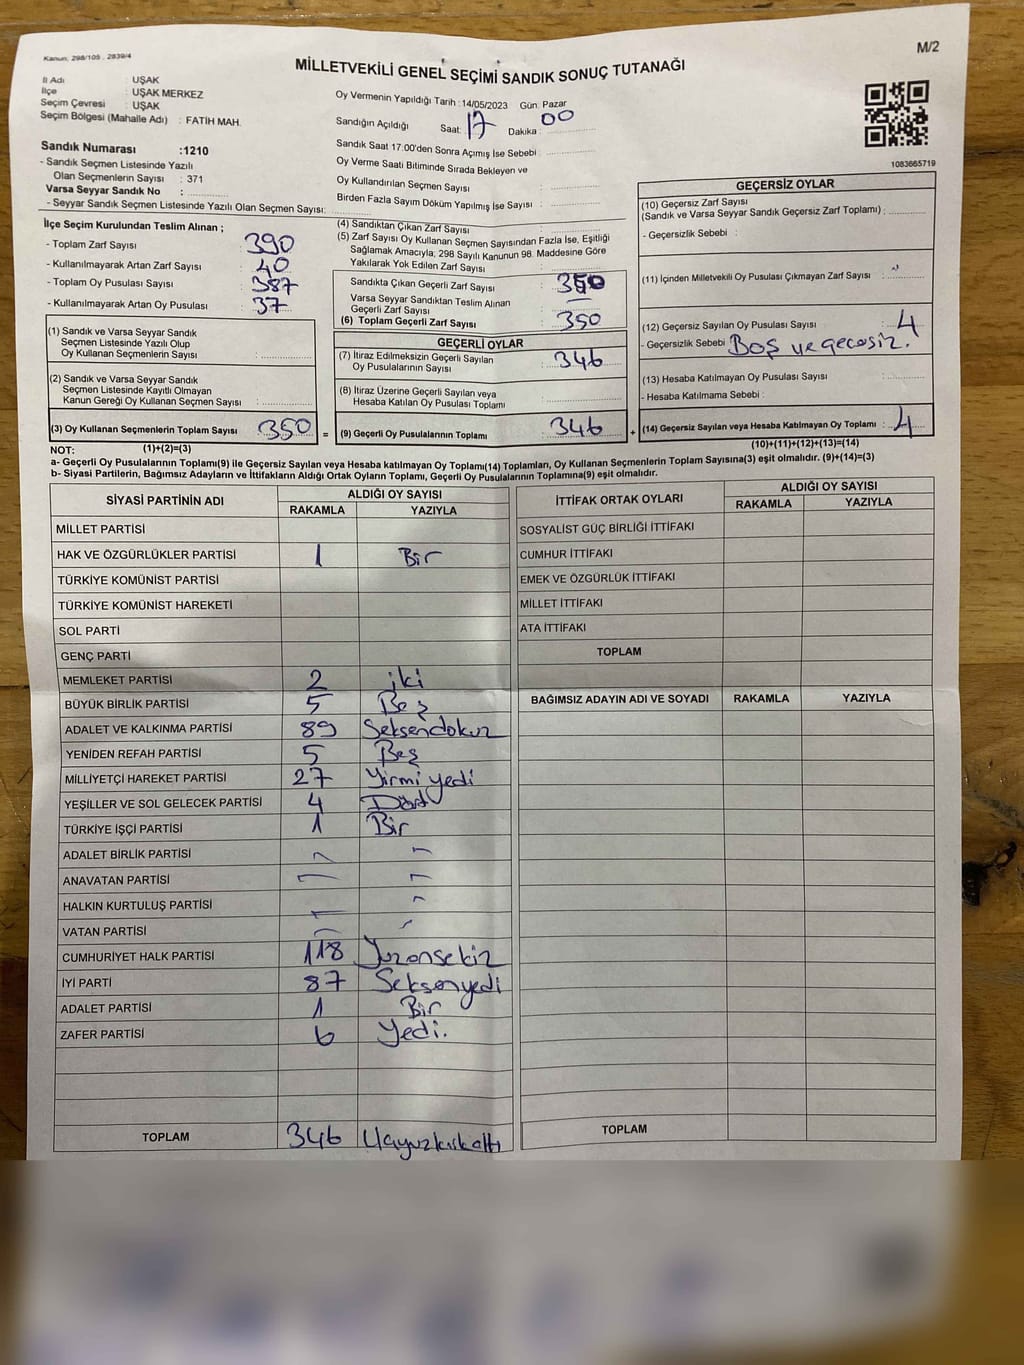 Kanun; 298/105 , 2839/4
M/2
MİLLETVEKİLİ GENEL SEÇİMİ SANDIK SONUÇ TUTANAĞI
İl Adı : UŞAK
İlçe : UŞAK MERKEZ
Seçim Çevresi : UŞAK
Seçim Bölgesi (Mahalle Adı) : FATİH MAH.
Sandık Numarası :1210
- Sandık Seçmen Listesinde Yazılı
Olan Seçmenlerin Sayısı : 371
Varsa Seyyar Sandık No :
- Seyyar Sandık Seçmen Listesinde Yazılı Olan Seçmen Sayısı:
Oy Vermenin Yapıldığı Tarih : 14/05/2023 Gün: Pazar
Sandığın Açıldığı Saat: 17 Dakika : 00
Sandık Saat 17:00'den Sonra Açımış İse Sebebi :
Oy Verme Saati Bitiminde Sırada Bekleyen ve
Oy Kullandırılan Seçmen Sayısı :
Birden Fazla Sayım Döküm Yapılmış İse Sayısı :
1083665719
İlçe Seçim Kurulundan Teslim Alınan ;
- Toplam Zarf Sayısı : 390
- Kullanılmayarak Artan Zarf Sayısı : 40
- Toplam Oy Pusulası Sayısı : 387
- Kullanılmayarak Artan Oy Pusulası : 37
(1) Sandık ve Varsa Seyyar Sandık
Seçmen Listesinde Yazılı Olup
Oy Kullanan Seçmenlerin Sayısı :
(2) Sandık ve Varsa Seyyar Sandık
Seçmen Listesinde Kayıtlı Olmayan
Kanun Gereği Oy Kullanan Seçmen Sayısı :
(3) Oy Kullanan Seçmenlerin Toplam Sayısı : 350
(4) Sandıktan Çıkan Zarf Sayısı :
(5) Zarf Sayısı Oy Kullanan Seçmen Sayısından Fazla İse, Eşitliği
Sağlamak Amacıyla; 298 Sayılı Kanunun 98. Maddesine Göre
Yakılarak Yok Edilen Zarf Sayısı :
Sandıkta Çıkan Geçerli Zarf Sayısı : 350
Varsa Seyyar Sandıktan Teslim Alınan
Geçerli Zarf Sayısı :
(6) Toplam Geçerli Zarf Sayısı : 350
GEÇERLİ OYLAR
(7) İtiraz Edilmeksizin Geçerli Sayılan
Oy Pusulalarının Sayısı : 346
(8) İtiraz Üzerine Geçerli Sayılan veya
Hesaba Katılan Oy Pusulası Toplamı :
= (9) Geçerli Oy Pusulalarının Toplamı : 346
GEÇERSİZ OYLAR
(10) Geçersiz Zarf Sayısı
(Sandık ve Varsa Seyyar Sandık Geçersiz Zarf Toplamı) :
- Geçersizlik Sebebi :
(11) İçinden Milletvekili Oy Pusulası Çıkmayan Zarf Sayısı :
(12) Geçersiz Sayılan Oy Pusulası Sayısı : 4
- Geçersizlik Sebebi : Boş ve gecesiz.
(13) Hesaba Katılmayan Oy Pusulası Sayısı :
- Hesaba Katılmama Sebebi :
+ (14) Geçersiz Sayılan veya Hesaba Katılmayan Oy Toplamı : 4
NOT: (1)+(2)=(3)
(10)+(11)+(12)+(13)=(14)
a- Geçerli Oy Pusulalarının Toplamı(9) ile Geçersiz Sayılan veya Hesaba katılmayan Oy Toplamı(14) Toplamları, Oy Kullanan Seçmenlerin Toplam Sayısına(3) eşit olmalıdır. (9)+(14)=(3)
b- Siyasi Partilerin, Bağımsız Adayların ve İttifakların Aldığı Ortak Oyların Toplamı, Geçerli Oy Pusulalarının Toplamına(9) eşit olmalıdır.
SİYASİ PARTİNİN ADI ALDIĞI OY SAYISI
RAKAMLA YAZIYLA
MİLLET PARTİSİ
HAK VE ÖZGÜRLÜKLER PARTİSİ 1 Bir
TÜRKİYE KOMÜNİST PARTİSİ
TÜRKİYE KOMÜNİST HAREKETİ
SOL PARTİ
GENÇ PARTİ
MEMLEKET PARTİSİ 2 iki
BÜYÜK BİRLİK PARTİSİ 5 Beş
ADALET VE KALKINMA PARTİSİ 89 Seksendokuz
YENİDEN REFAH PARTİSİ 5 Beş
MİLLİYETÇİ HAREKET PARTİSİ 27 Yirmi yedi
YEŞİLLER VE SOL GELECEK PARTİSİ 4 Dört
TÜRKİYE İŞÇİ PARTİSİ 1 Bir
ADALET BİRLİK PARTİSİ - -
ANAVATAN PARTİSİ - -
HALKIN KURTULUŞ PARTİSİ - -
VATAN PARTİSİ - -
CUMHURİYET HALK PARTİSİ 118 Yuzonsekiz
İYİ PARTİ 87 Seksenyedi
ADALET PARTİSİ 1 Bir
ZAFER PARTİSİ 6 Yedi.
TOPLAM 346 Uayuzkırkaltı
İTTİFAK ORTAK OYLARI ALDIĞI OY SAYISI
RAKAMLA YAZIYLA
SOSYALİST GÜÇ BİRLİĞİ İTTİFAKI
CUMHUR İTTİFAKI
EMEK VE ÖZGÜRLÜK İTTİFAKI
MİLLET İTTİFAKI
ATA İTTİFAKI
TOPLAM
BAĞIMSIZ ADAYIN ADI VE SOYADI RAKAMLA YAZIYLA
TOPLAM